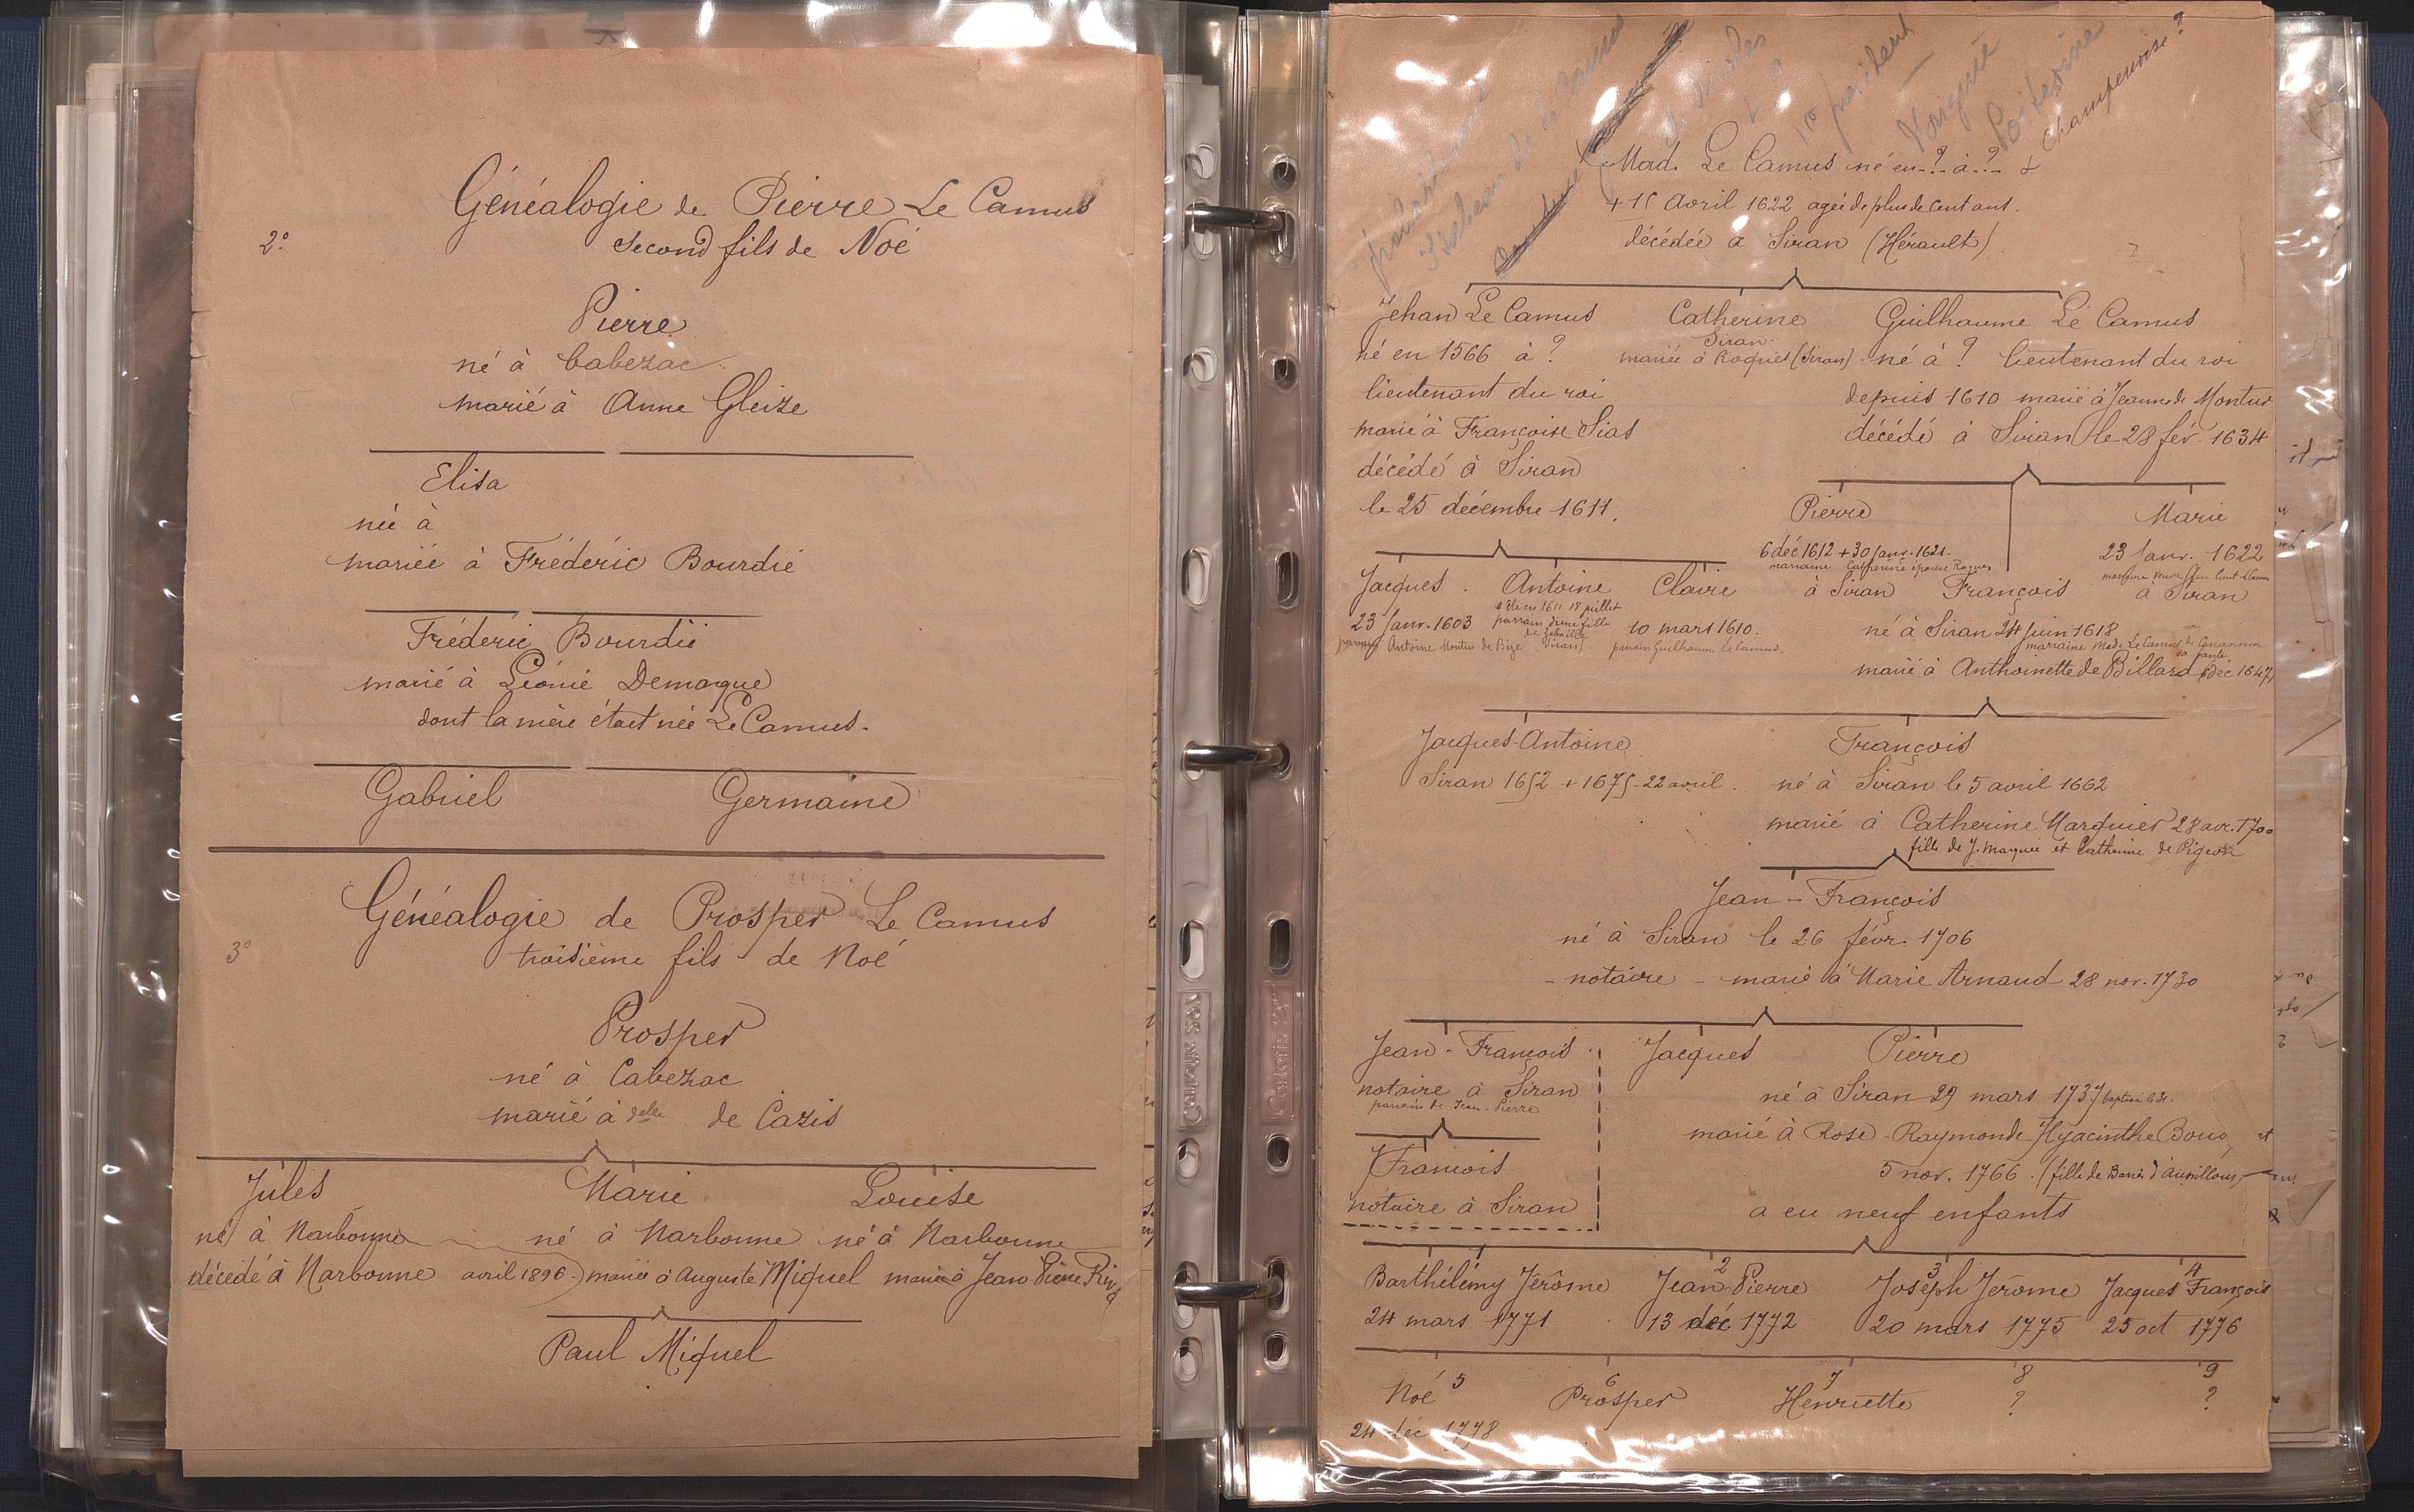 Généalogie de Pierre Le Camus
2º second fils de Noé
Pierre
né à Cabezac
marié à Anne Gleize
Elisa
née à
mariée à Fréderic Bourdié
Fréderic Bourdié
marié à Léonie Demarque
dont la mère était née Le Camus.
Gabriel Germaine
Généalogie de Prosper Le Camus
3º troisième fils de Noé
Prosper
né à Cabezac
marié à delle de Cazis
Jules Marie Louise
né à Narbonne né à Narbonne né à Narbonne
décédé à Narbonne avril 1896.) mariée à Auguste Miquel mariée à Jean Pierre
Paul Miquel
probablement
1er président
Poitevine
Champenoise?
Mad. Le Camus né en..?.. à..?..
+ 15 Avril 1622 agée de plus de cent ans.
décédée à Siran (Hérault)
?
Jehan Le Camus Catherine Guilhaume Le Camus
Siran
né en 1566 à ? mariée à Roques (Siran) né à ? lieutenant du roi
lieutenant du roi depuis 1610 marié à Jeanne de Montus
marié à Françoise Sias décédé à Siran le 28 fév. 1634
décédé à Siran
le 25 décembre 1611.
Pierre Marie
6 déc 1612 + 30 janv. 1621. 23 janv. 1622
marraine Catherine épouse Roques
Jacques. Antoine Claire à Siran François à Siran
a été en 1611 18 juillet
23 janv. 1603 parrain d'une fille 10 mars 1610. né à Siran 24 juin 1618
parrain Antoine Montus de Bize (Siran) parrain Guilhaume Le Camus. marraine Mad. Le Camus
sa tante
marié à Anthoinette de Billard déc 1647
Jacques-Antoine François
Siran 1652 + 1675-22 avril. né à Siran le 5 avril 1662
marié à Catherine Marquier 28 avr. 1700
fille de J. Marquié et Catherine de Pigeon
Jean-François
né à Siran le 26 févr. 1706
- notaire - marié à Marie Arnaud 28 nov. 1730
Jean-François Jacques Pierre
notaire à Siran né à Siran 29 mars 1737 baptisé le 31.
parrain de Jean-Pierre
marié à Rose-Raymonde-Hyacinthe
François 5 nov. 1766.
notaire à Siran a eu neuf enfants
2 3 4
Barthélémy Jérôme Jean Pierre Joseph Jérome Jacques François
24 mars 1771 13 déc 1772 20 mars 1775 25 oct 1776
5 6 7 8 9
Noé Prosper Henriette ? ?
24 déc 1778